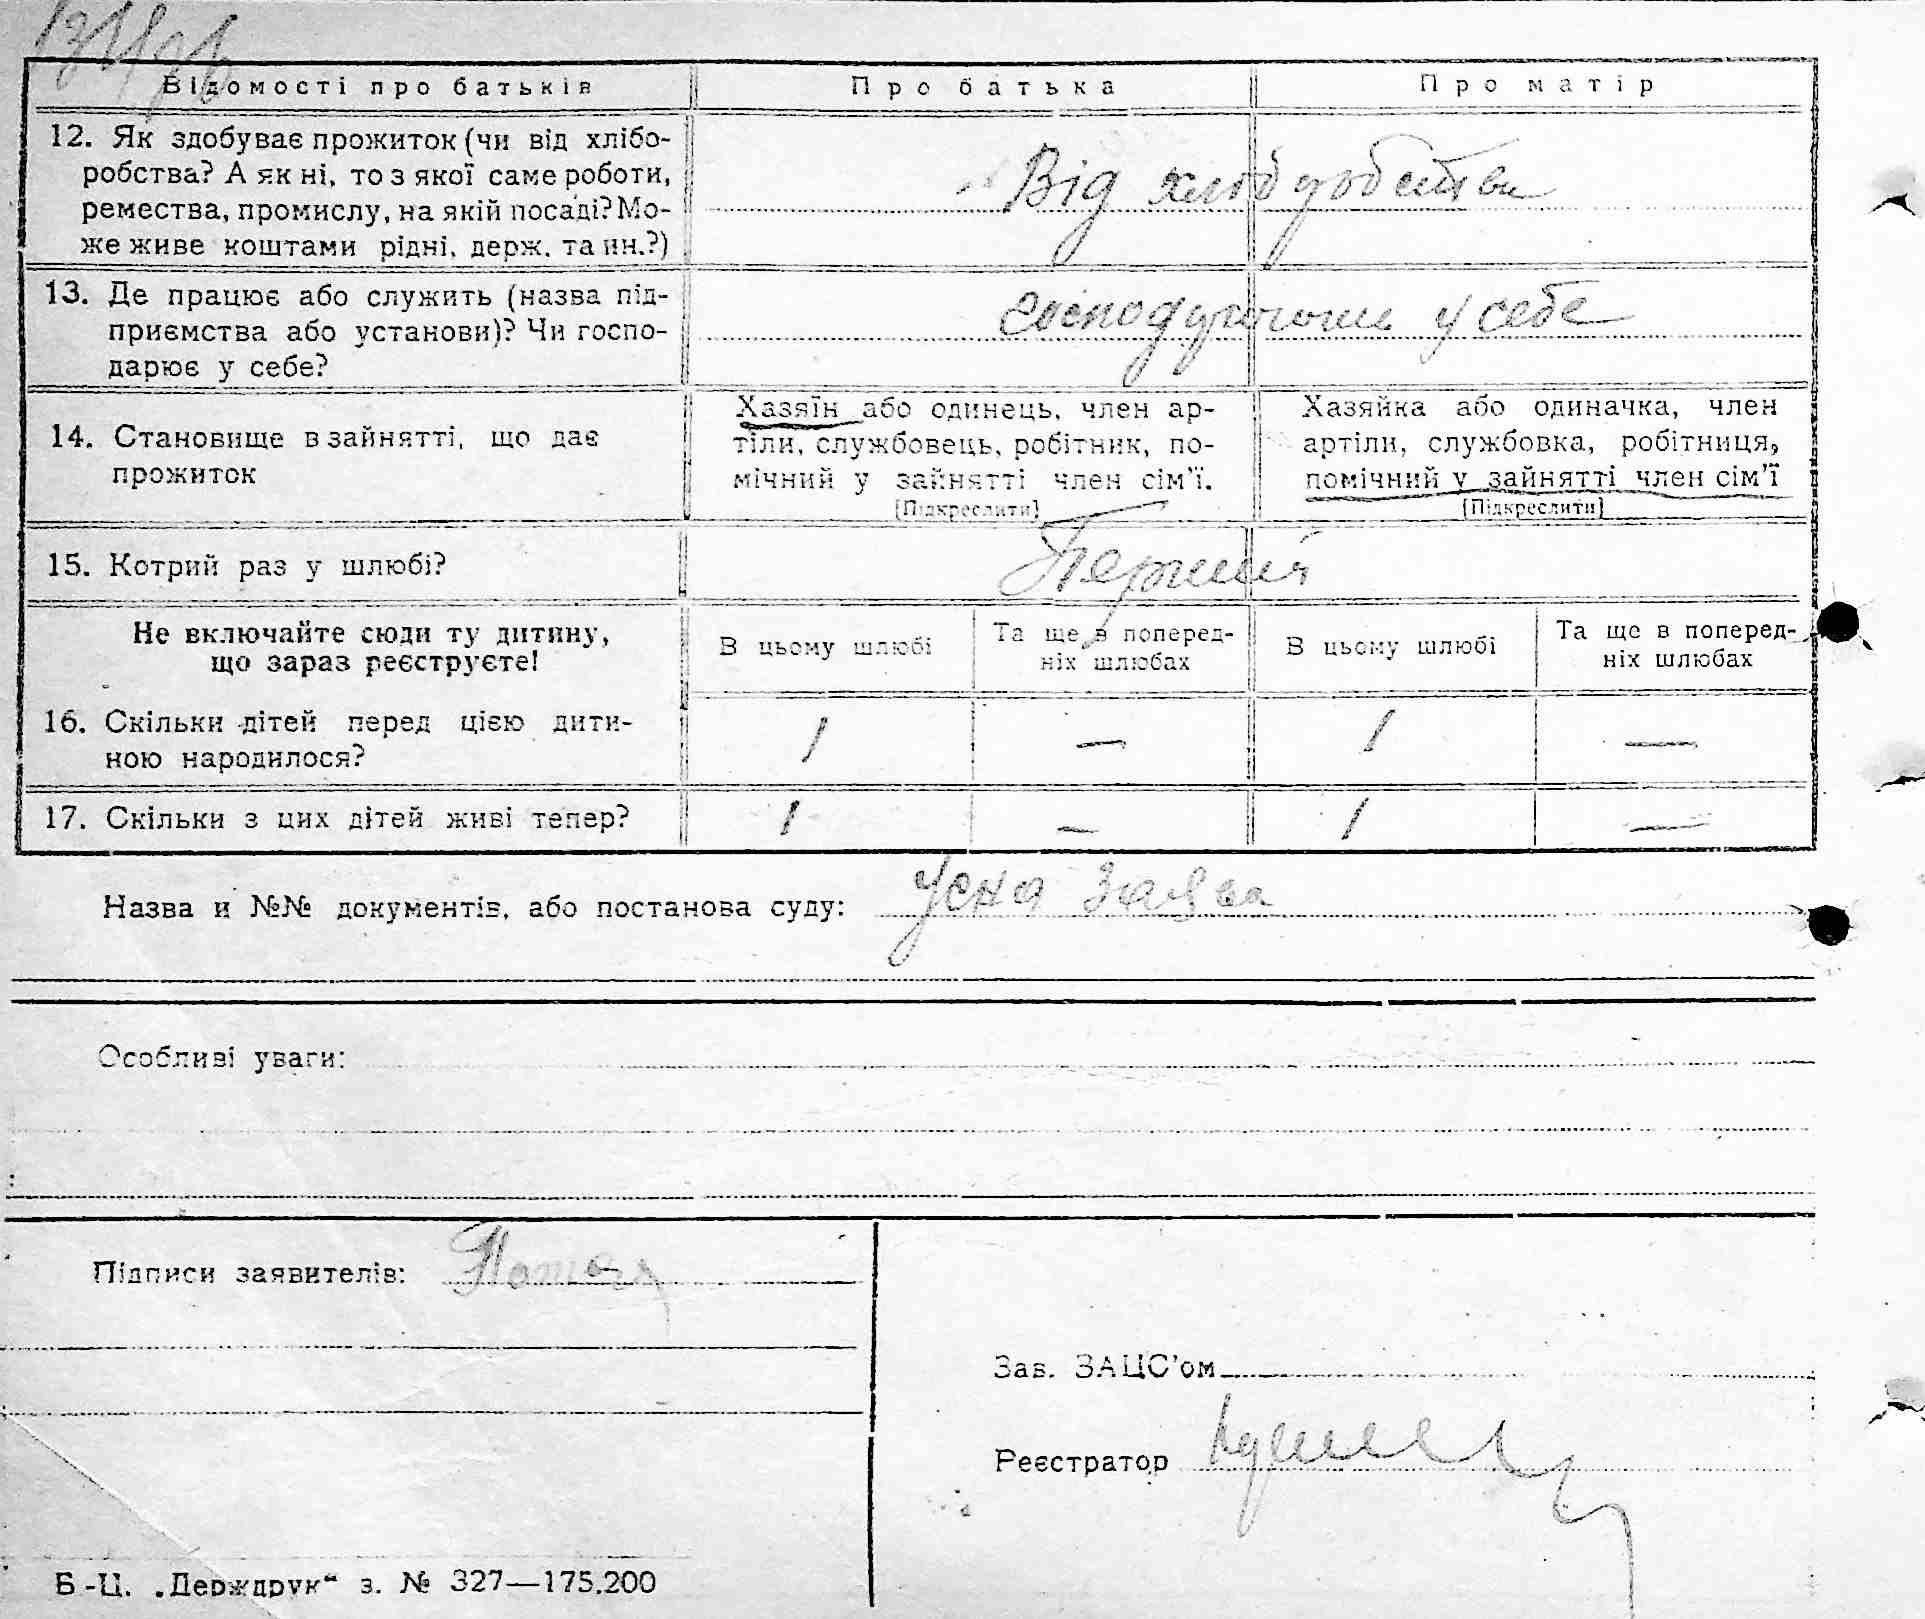 Відомості про батьків Про батька Про матір
12. Як здобуває прожиток (чи від хлібо-
робства? А як ні, то з якої саме роботи,
ремества, промислу, на якій посаді? Мо-
же живе коштами рідні, держ. та ин.?)
Від хліборобства
13. Де працює або служить (назва під-
приємства або установи)? Чи госпо-
дарює у себе?
у себе
14. Становище в зайнятті, що дає
прожиток
Хазяїн або одинець, член ар-
тіли, службовець, робітник, по-
мічний у зайнятті член сім'ї.
[Підкреслити]
Хазяйка або одиначка, член
артіли, службовка, робітниця,
помічний у зайнятті член сім'ї
[Підкреслити]
15. Котрий раз у шлюбі?
Перший
Не включайте сюди ту дитину,
що зараз реєструєте!
В цьому шлюбі
Та ще в поперед-
ніх шлюбах
В цьому шлюбі
Та ще в поперед-
ніх шлюбах
16. Скільки дітей перед цією дити-
ною народилося?
1 — 1 —
17. Скільки з цих дітей живі тепер? 1 — 1 —
Назва и №№ документів, або постанова суду: Усна заява
Особливі уваги:
Підписи заявителів:
Зав. ЗАЦС'ом
Реєстратор
Б-Ц. „Держдрук“ з. № 327—175.200